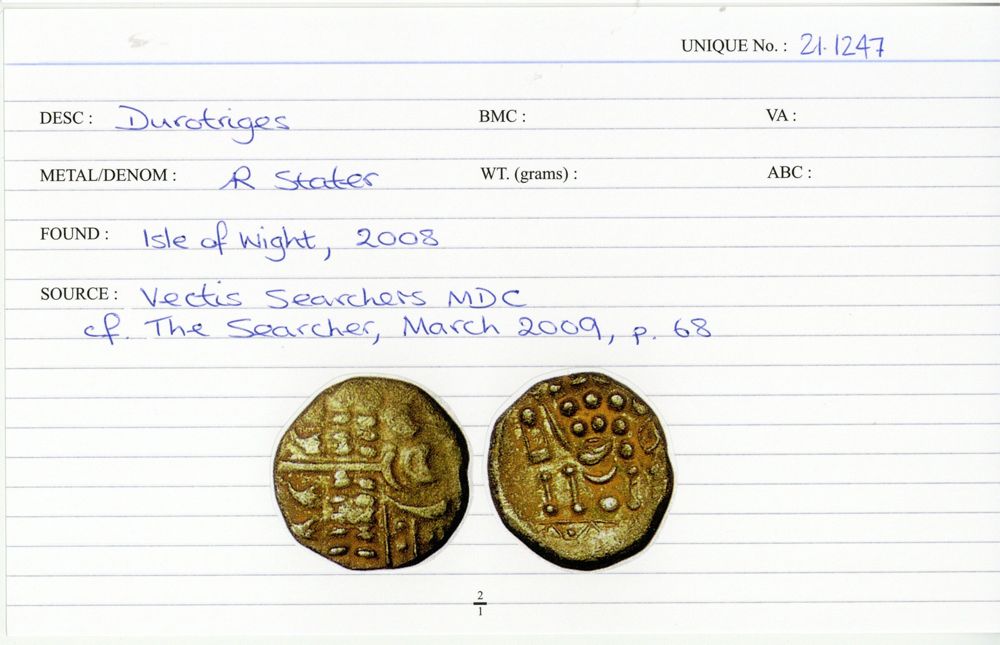 UNIQUE No. : 21.1247
DESC : Durotriges BMC : VA :
METAL/DENOM : Stater WT. (grams) : ABC :
FOUND : Isle of Wight, 2008
SOURCE : Vectis Searchers MDC
cf. The Searcher, March 2009, p. 68
2
1